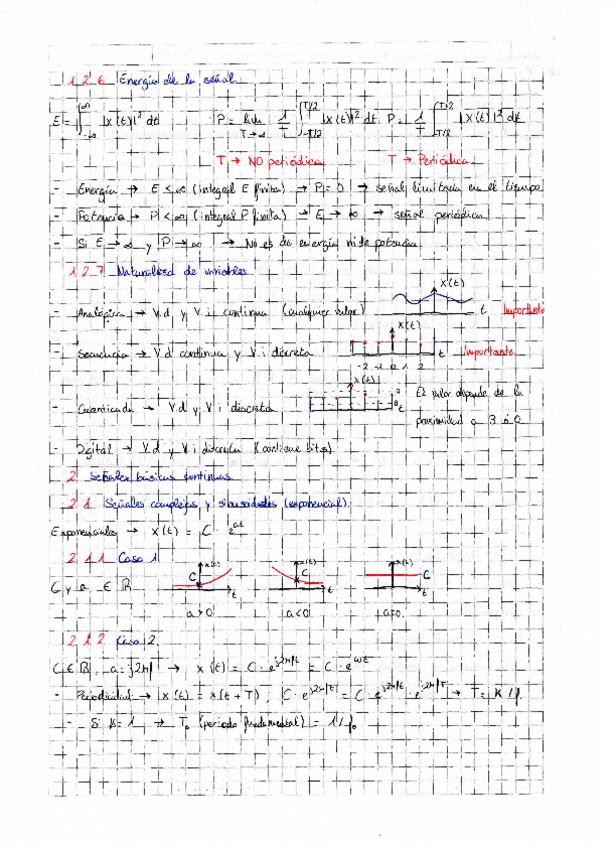 1.2.6 Energía de la señal
E = ∫_{-∞}^{∞} |x(t)|² dt    P = lim_{T→∞} 1/T ∫_{-T/2}^{T/2} |x(t)|² dt    P = 1/T ∫_{T/2}^{T/2} |x(t)|² dt
T → NO periódica    T → Periódica
- Energía → E < ∞ (integral E finita) → P = 0 → señal limitada en el tiempo
- Potencia → P < ∞ (integral P finita) → E → ∞ → señal periódica
- Si E → ∞ y P → ∞ → No es de energía ni de potencia
1.2.7 Naturaleza de variables
x(t)
- Analógica → V.d y V.i continua (cualquier valor)    t    Importante
x(t)
- Secuencia → V.d continua y V.i discreta    t    Importante
-2 -1 0 1 2
x(t)
- Cuantizada → V.d y V.i discreta    t    El valor depende de la
proximidad a 3 ó 0
- Digital → V.d y V.i discreta (contiene bits)
2. Señales básicas continuas
2.1 Señales complejas y sinusoidales (exponencial)
Exponenciales → x(t) = C · e^{at}
2.1.1 Caso 1
x(t)    x(t)    x(t)
C y a ∈ ℝ    C    t    C    t    C    t
a>0    a<0    a=0
2.1.2 Caso 2
C ∈ ℝ, a = j2πf → x(t) = C · e^{j2πft} = C · e^{ωt}
- Periodicidad → x(t) = x(t+T), C · e^{j2πft} = C · e^{j2πft} · e^{j2πfT} → T = K/f
- Si K = 1 → T₀ (periodo fundamental) = 1/f₀